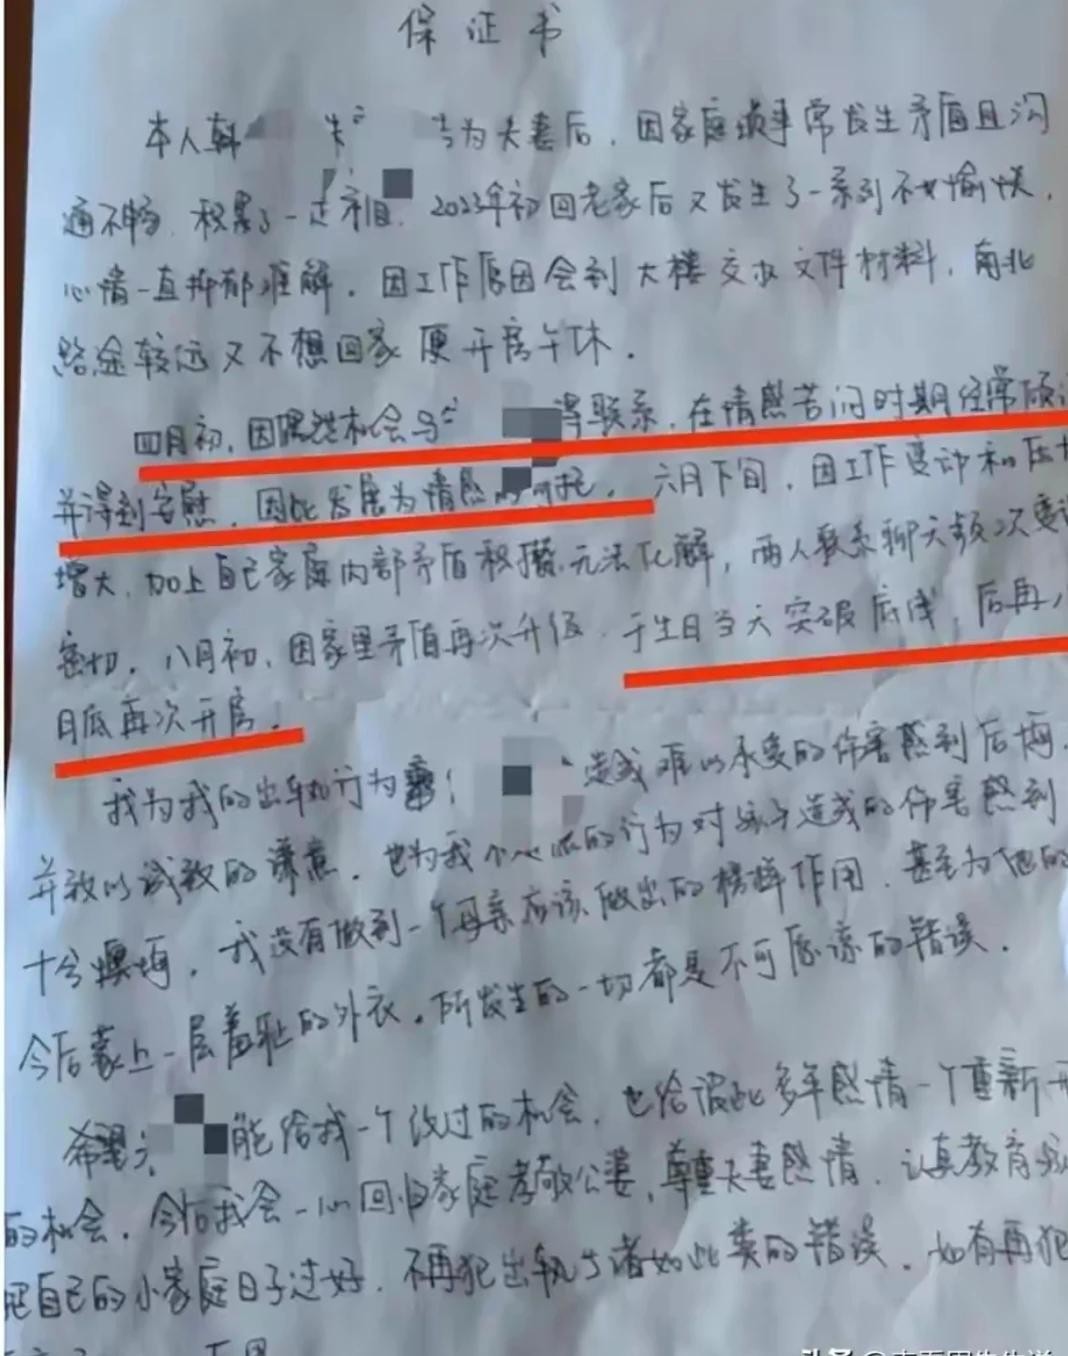 保证书
本人韩 朱 为夫妻后，因家庭琐事常发生矛盾且沟
通不畅，积累了一定 2023年初回老家后又发生了一系列不愉快，
心情一直抑郁难解，因工作原因会到大楼交办文件材料，南北
路途较远又不想回家便开房午休。
四月初，因偶然机会与 得联系，在情感苦闷时期经常倾
并得到安慰，因此发展为情感 托，六月下旬，因工作变动和压
增大，加上自己家庭内部矛盾积攒无法化解，两人联系聊天频次变
密切，八月初，因家里矛盾再次升级，于生日当天突破底线，后再
月底再次开房。
我为我的出轨行为 造成难以承受的伤害感到后悔，
并致以诚致的谦意，也为我 的行为对孩子造成的伤害感到
十分懊悔，我没有做到一个母亲应该做出的榜样作用，甚至为他的
今后蒙上一层羞耻的外衣。所发生的一切都是不可原谅的错误。
希望 能给我一个改过的机会，也给彼此多年感情一个重新
的机会，今后我会一心回归家庭孝敬公婆，尊重夫妻感情，认真教育孩
把自己的小家庭日子过好，不再犯出轨 诸如此类的错误。如有再犯